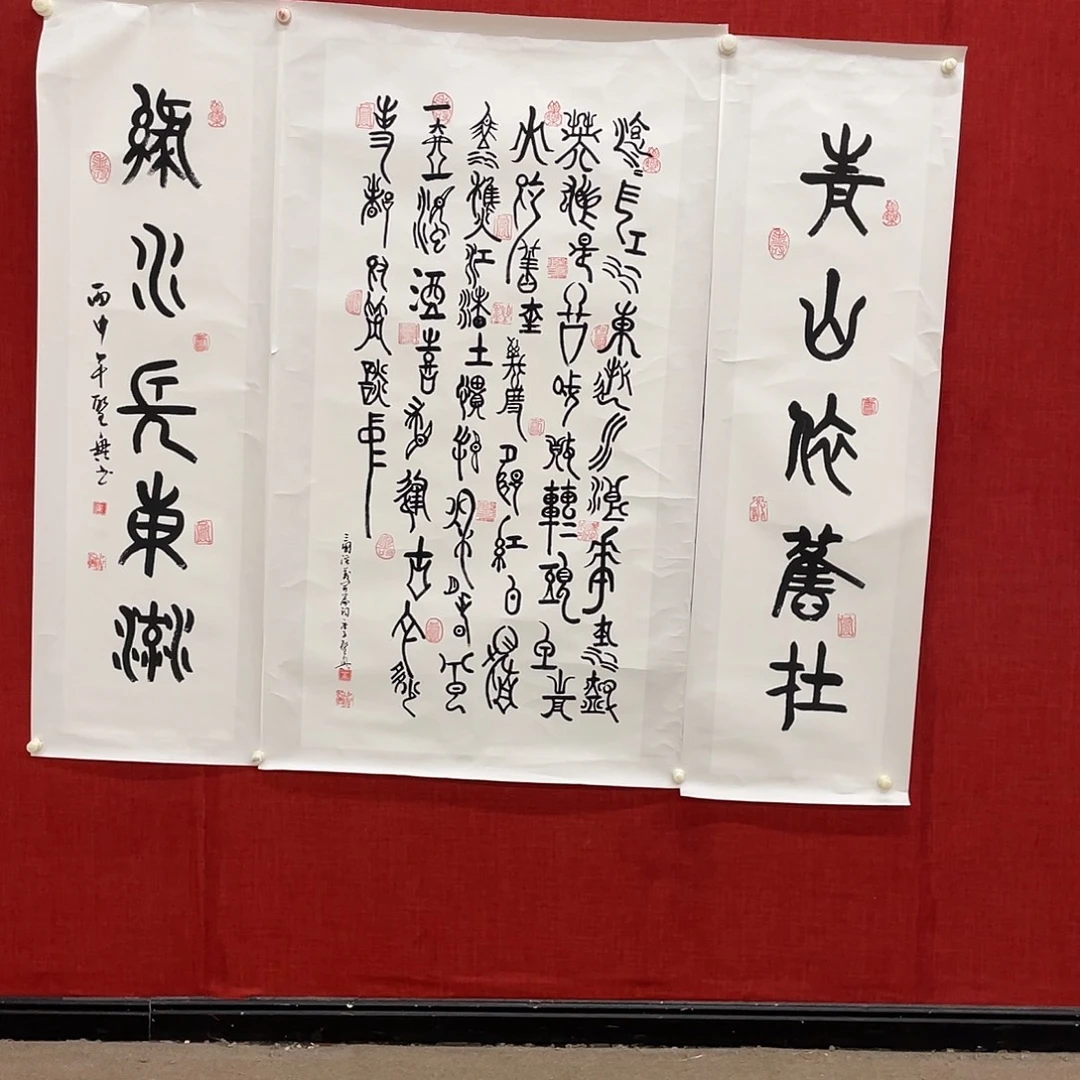 青山依舊在
滾滾長江東逝水浪花淘盡
英雄是非成敗轉頭空青
山依舊在幾度夕陽紅白髮
漁樵江渚上慣看秋月春風
一壺濁酒喜相逢古今多少
事都付笑談中
三國演義開篇詞
綠水長東流
丙申年